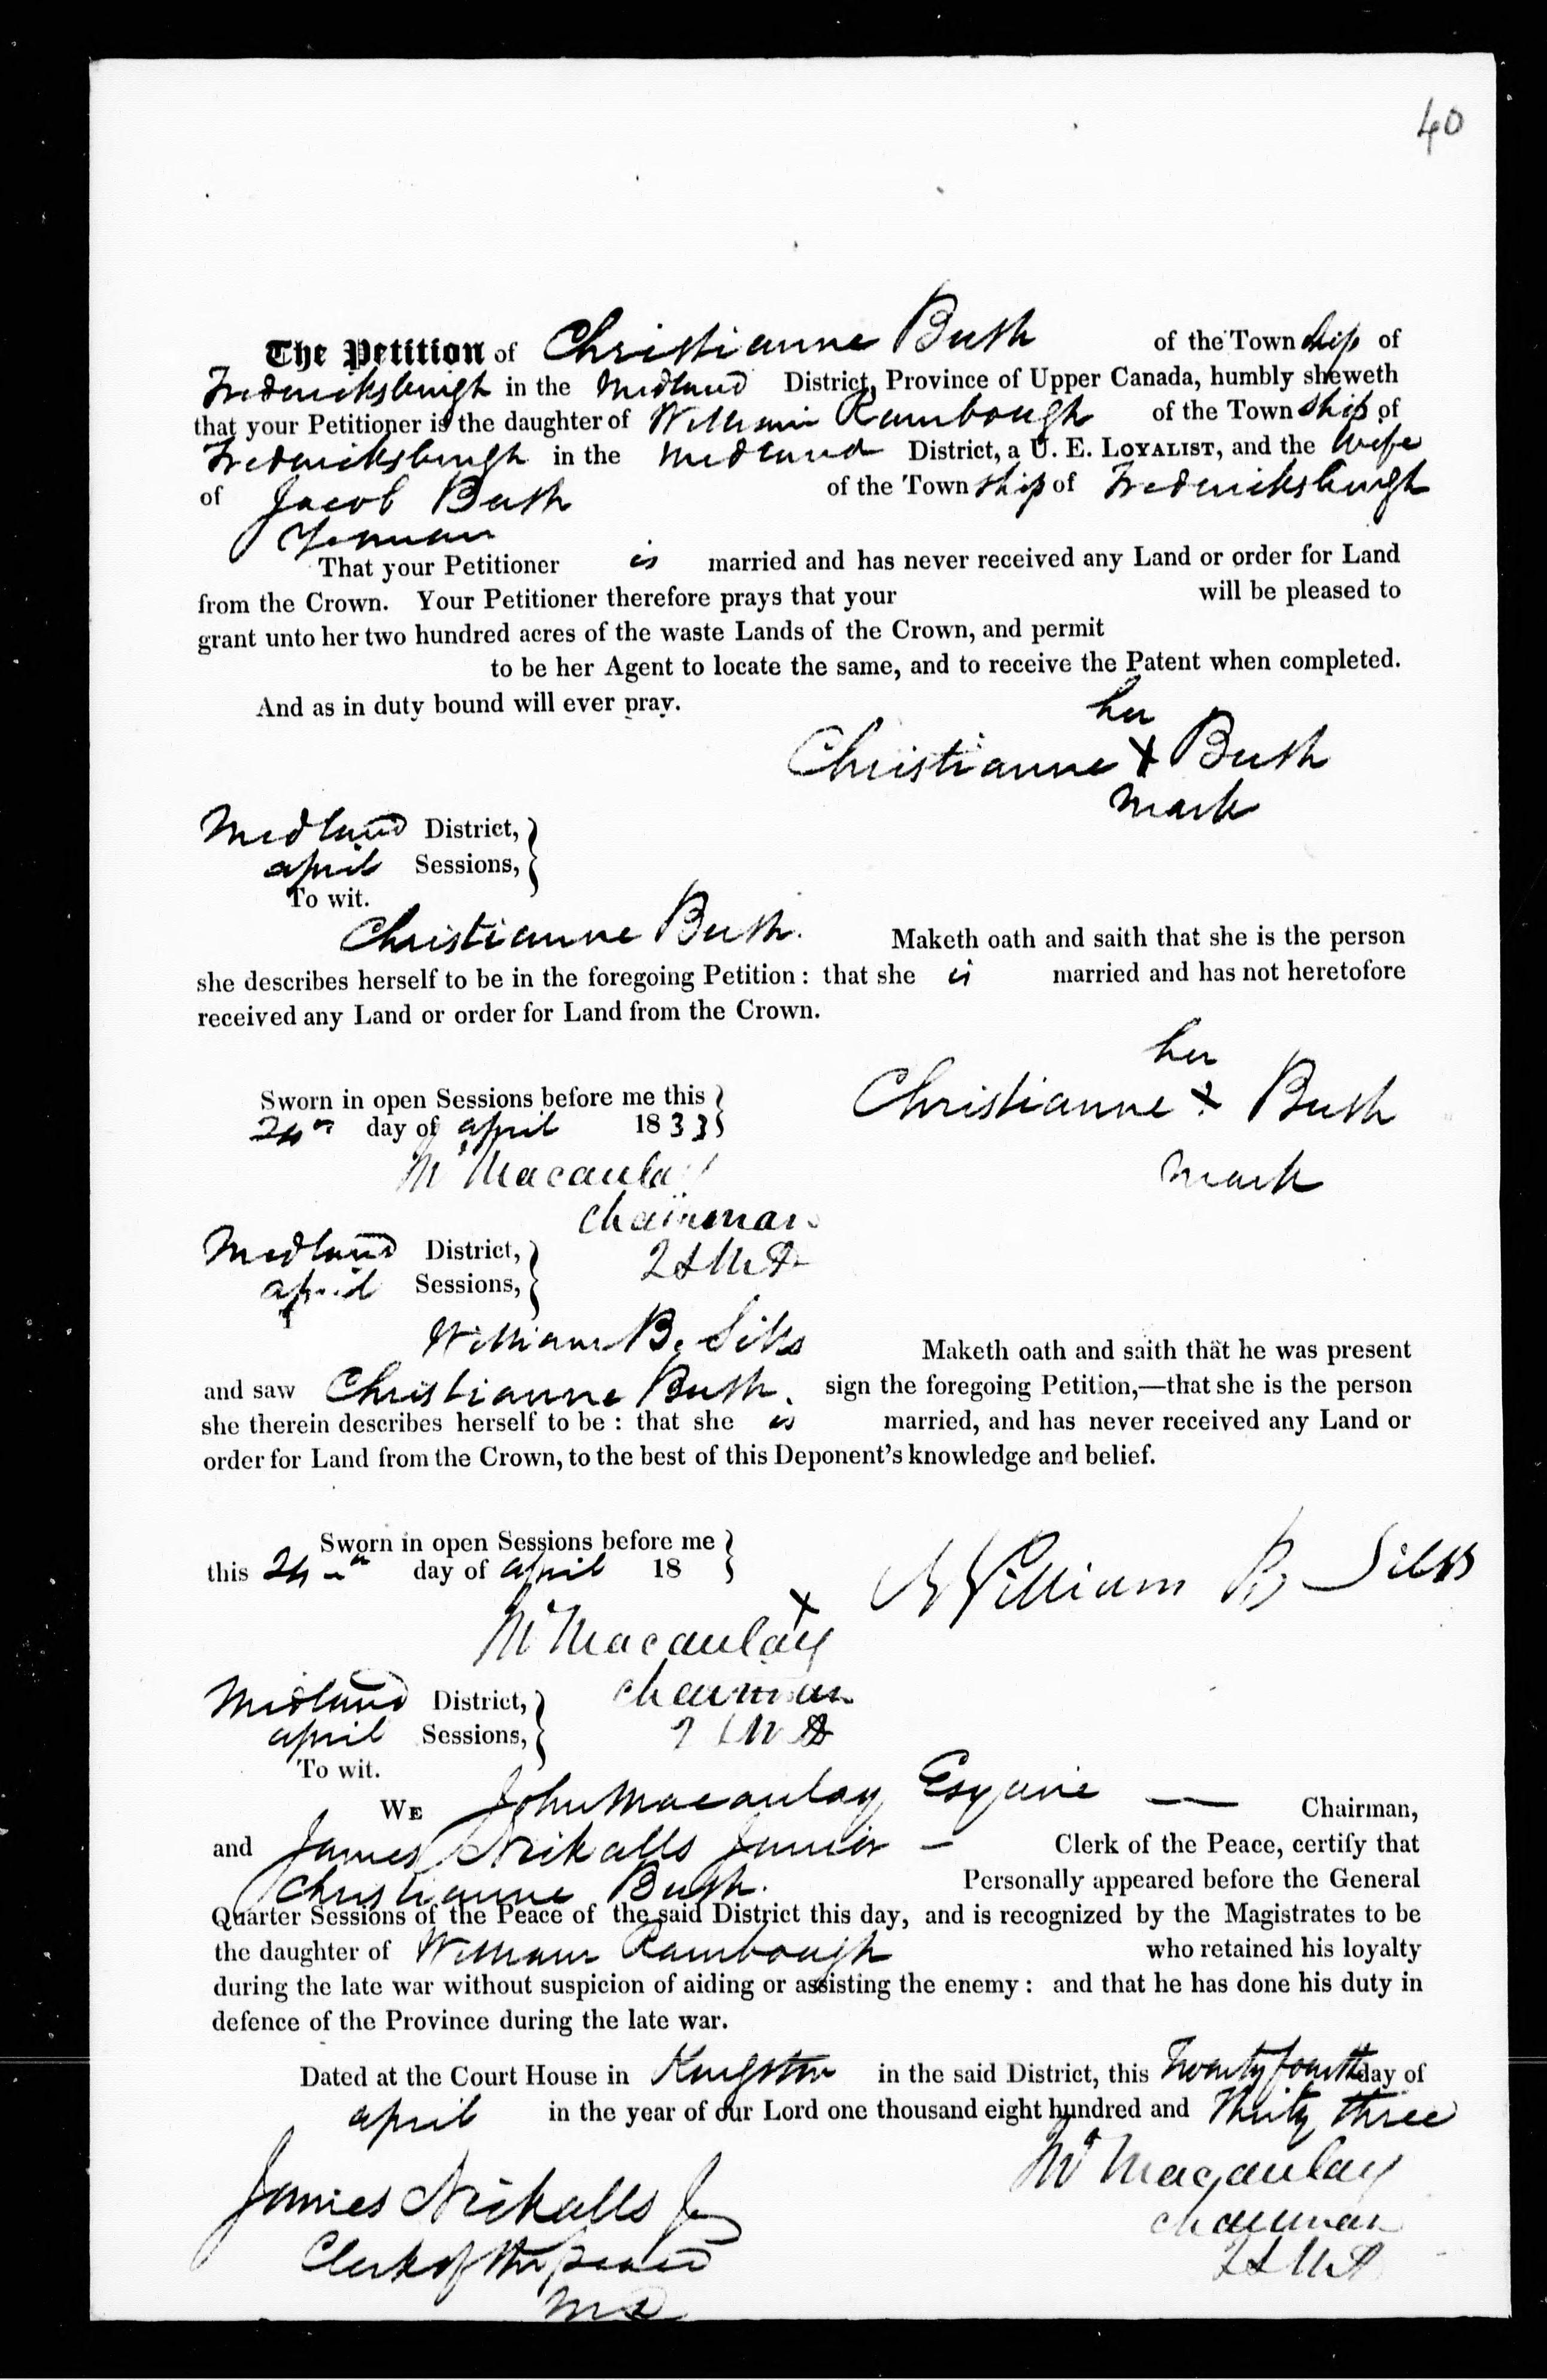 40
The Petition of Christianne Bush of the Township of
Fredericksburgh in the Midland District, Province of Upper Canada, humbly sheweth
that your Petitioner is the daughter of William Rambough of the Township of
Fredericksburgh in the Midland District, a U. E. LOYALIST, and the Wife
of Jacob Bush of the Township of Fredericksburgh
Yeoman
That your Petitioner is married and has never received any Land or order for Land
from the Crown. Your Petitioner therefore prays that your will be pleased to
grant unto her two hundred acres of the waste Lands of the Crown, and permit
to be her Agent to locate the same, and to receive the Patent when completed.
And as in duty bound will ever pray.
her
Christianne X Bush
mark
Midland District,
april Sessions,
To wit.
Christianne Bush. Maketh oath and saith that she is the person
she describes herself to be in the foregoing Petition: that she is married and has not heretofore
received any Land or order for Land from the Crown.
her
Christianne X Bush
mark
Sworn in open Sessions before me this
24th day of april 1833
Macaulay
Chairman
Midland District,
april Sessions,
William B. Sills Maketh oath and saith that he was present
and saw Christianne Bush. sign the foregoing Petition,—that she is the person
she therein describes herself to be: that she is married, and has never received any Land or
order for Land from the Crown, to the best of this Deponent's knowledge and belief.
Sworn in open Sessions before me
this 24th day of april 18
X William B Sills
Macaulay
chairman
Midland District,
april Sessions,
To wit.
WE John Macaulay Esquire — Chairman,
and James Nickalls Junior — Clerk of the Peace, certify that
Christianne Bush. Personally appeared before the General
Quarter Sessions of the Peace of the said District this day, and is recognized by the Magistrates to be
the daughter of William Rambough who retained his loyalty
during the late war without suspicion of aiding or assisting the enemy: and that he has done his duty in
defence of the Province during the late war.
Dated at the Court House in Kingston in the said District, this Twenty fourth day of
april in the year of our Lord one thousand eight hundred and Thirty three
Macaulay
chairman
James Nickalls Jr
Clerk of the peace
MD